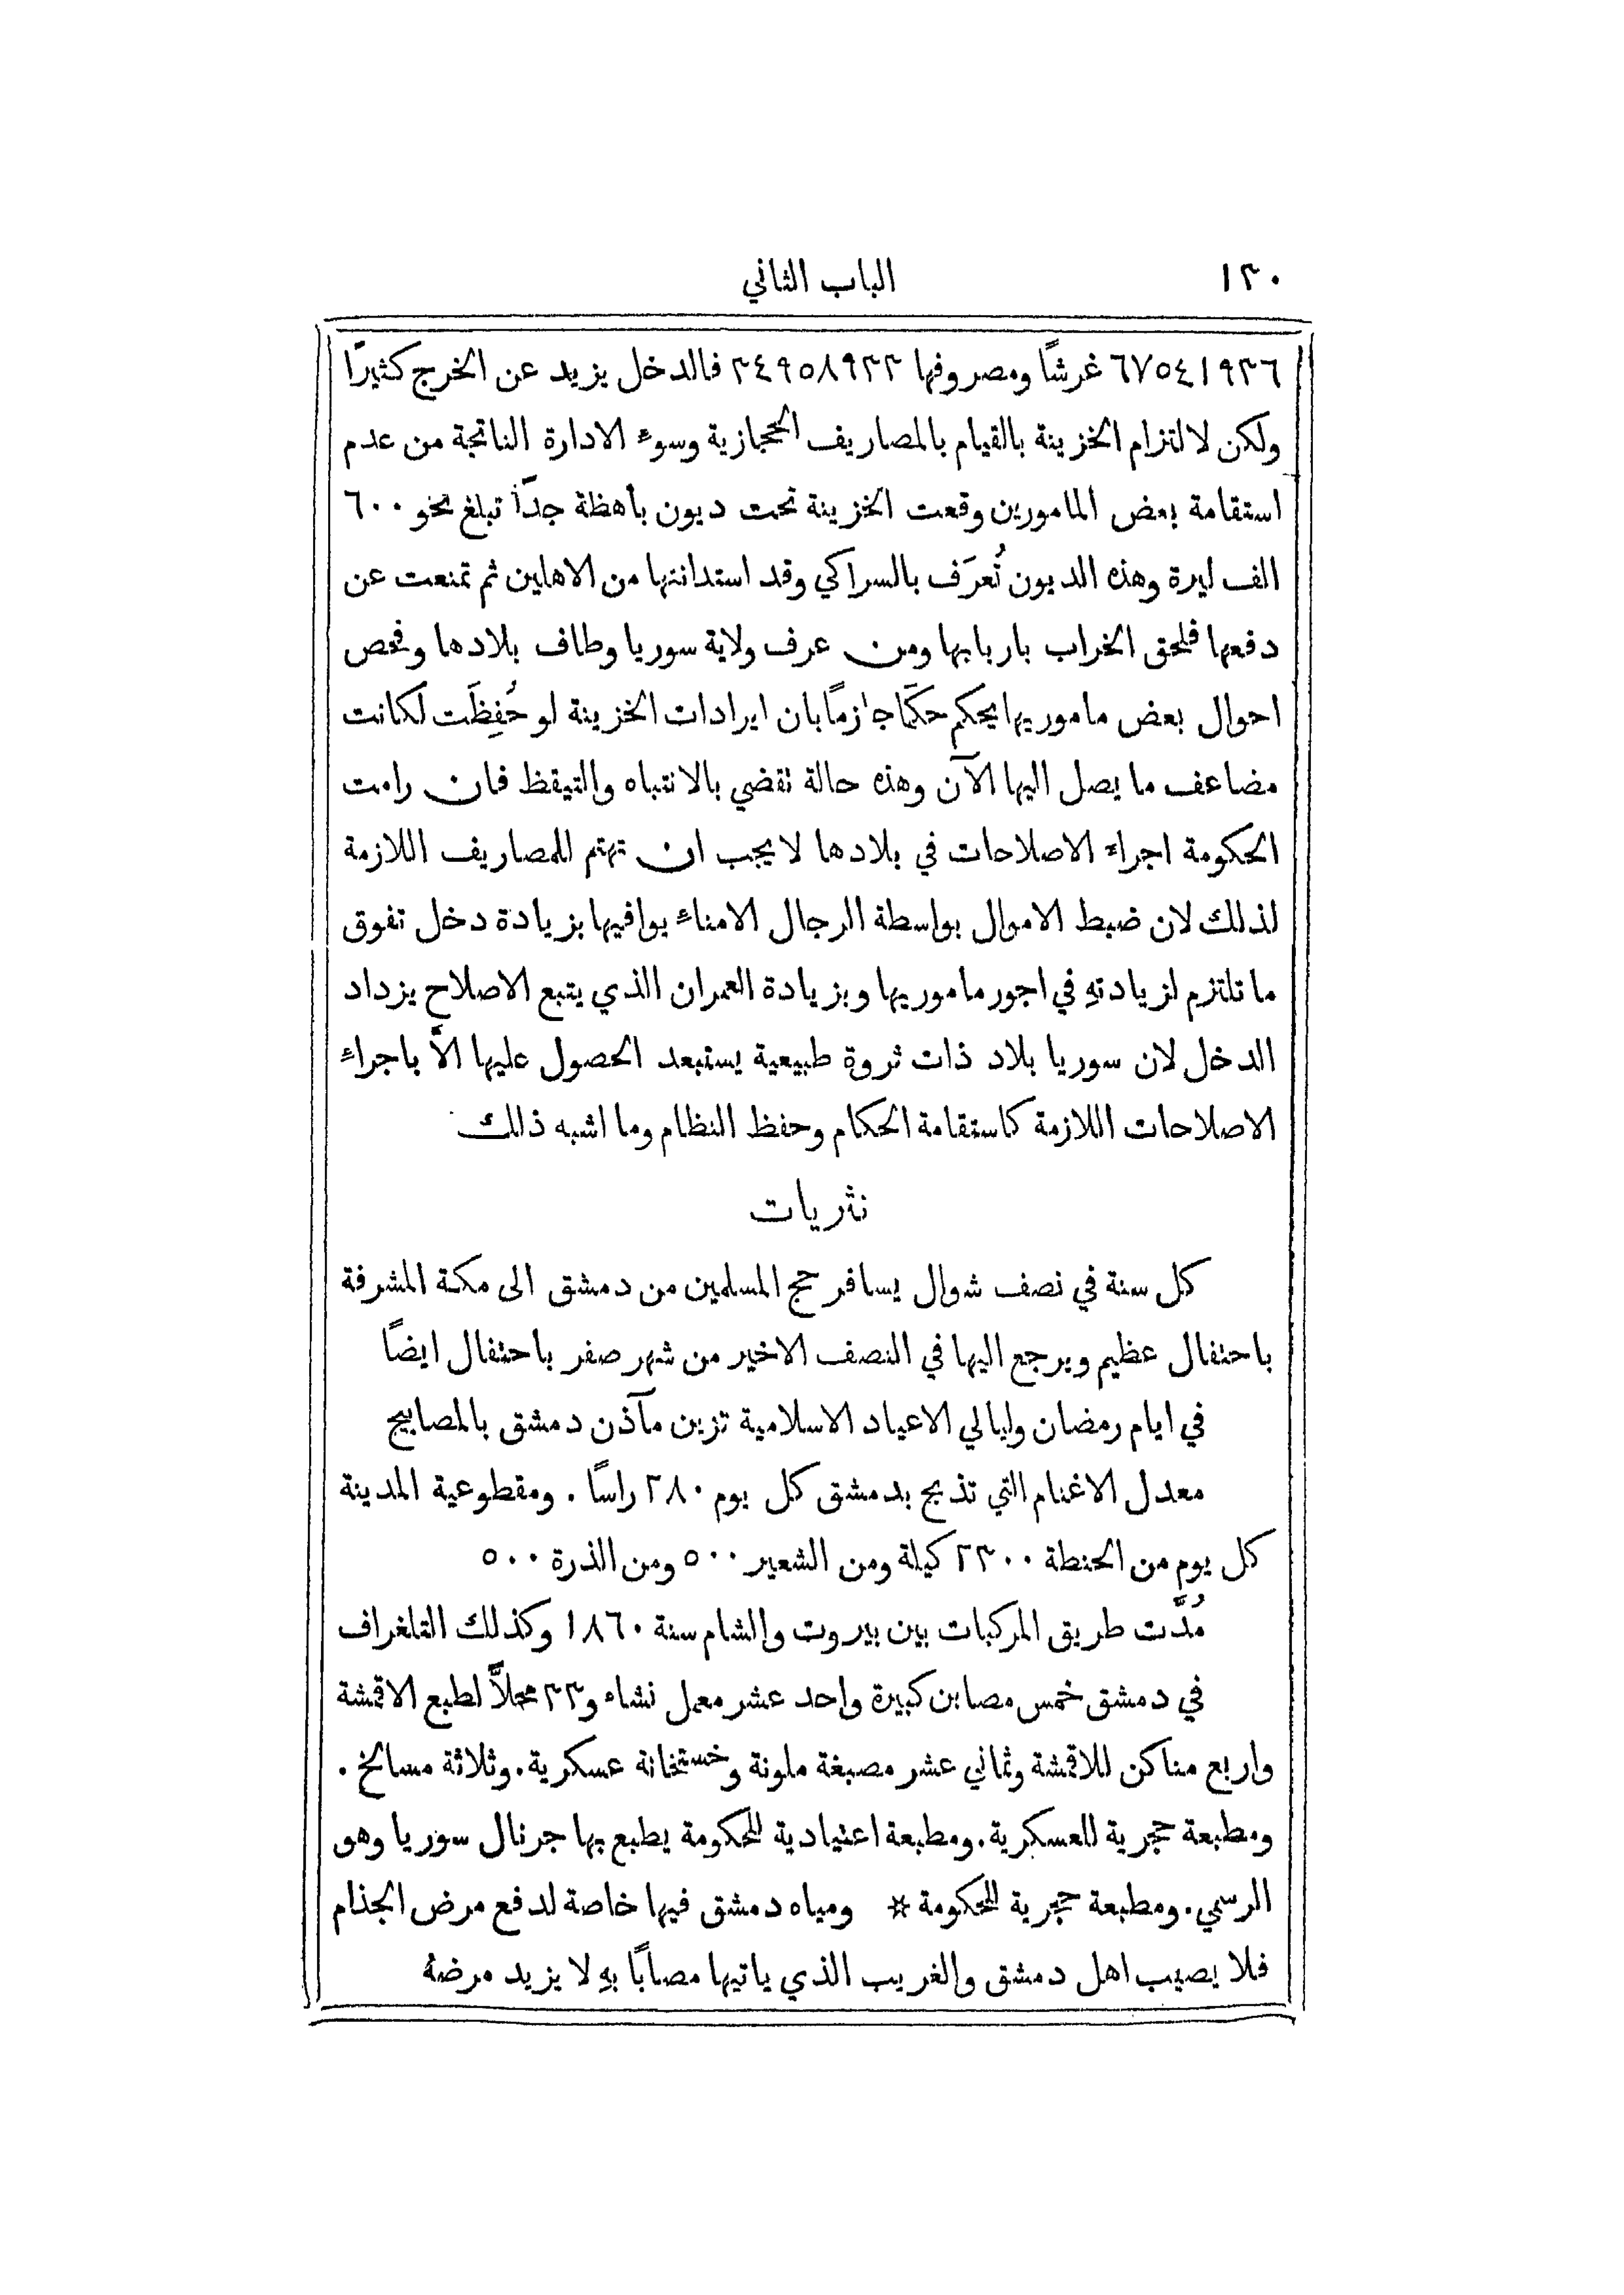 ١٣٠ الباب الثاني
٦٧٥٤١٩٣٦ غرشًا ومصروفها ٣٤٩٥٨٩٣٣ فالدخل يزيد عن الخرج كثيرًا
ولكن لالتزام الخزينة بالقيام بالمصاريف الحجازية وسوء الادارة الناتجة من عدم
استقامة بعض المامورين وقعت الخزينة تحت ديون باهظة جدًّا تبلغ نحو ٦٠٠
الف ليرة وهذه الديون تُعرَف بالسراكي وقد استدانتها من الاهلين ثم تمنعت عن
دفعها فلحق الخراب باربابها ومن عرف ولاية سوريا وطاف بلادها وفحص
احوال بعض ماموريها يحكم حكمًا جازمًا بان ايرادات الخزينة لو حُفِظَت لكانت
مضاعف ما يصل اليها الآن وهذه حالة تقضي بالانتباه والتيقظ فان رامت
الحكومة اجراء الاصلاحات في بلادها لا يجب ان تهتم للمصاريف اللازمة
لذلك لان ضبط الاموال بواسطة الرجال الامناء يوافيها بزيادة دخل تفوق
ما تلتزم لزيادتهِ في اجور ماموريها وبزيادة العمران الذي يتبع الاصلاح يزداد
الدخل لان سوريا بلاد ذات ثروة طبيعية يستبعد الحصول عليها الاَّ باجراء
الاصلاحات اللازمة كاستقامة الحكام وحفظ النظام وما اشبه ذلك
نثريات
كل سنة في نصف شوال يسافر حج المسلمين من دمشق الى مكة المشرفة
باحتفال عظيم ويرجع اليها في النصف الاخير من شهر صفر باحتفال ايضًا
في ايام رمضان وليالي الاعياد الاسلامية تزين مآذن دمشق بالمصابيح
معدل الاغنام التي تذبح بدمشق كل يوم ٢٨٠ راسًا . ومقطوعية المدينة
كل يوم من الحنطة ٢٣٠٠ كيلة ومن الشعير ٥٠٠ ومن الذرة ٥٠٠
مُدَّت طريق المركبات بين بيروت والشام سنة ١٨٦٠ وكذلك التلغراف
في دمشق خمس مصابن كبيرة واحد عشر معمل نشاء و٣٣ محلاًّ لطبع الاقمشة
واربع مناكن للاقمشة وثماني عشر مصبغة ملونة وخستخانة عسكرية . وثلاثة مسالخ .
ومطبعة حجرية للعسكرية . ومطبعة اعتيادية للحكومة يطبع بها جرنال سوريا وهو
الرسمي . ومطبعة حجرية للحكومة * ومياه دمشق فيها خاصة لدفع مرض الجذام
فلا يصيب اهل دمشق والغريب الذي ياتيها مصابًا بهِ لا يزيد مرضهُ